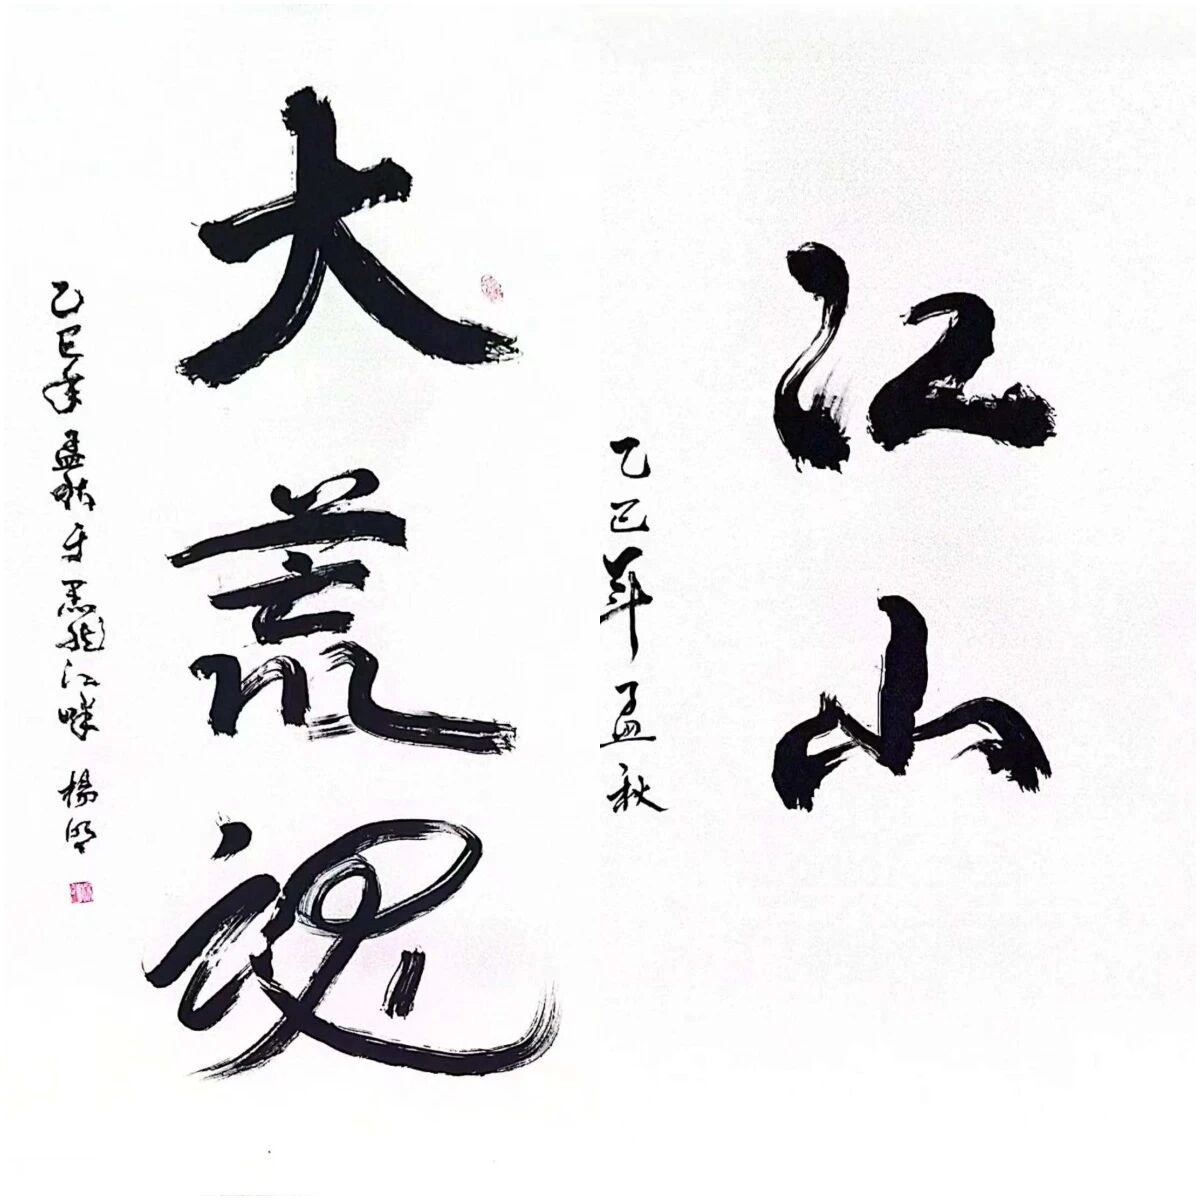 大荒魂
乙巳年孟秋于黑龙江畔 楊明
江山
乙巳年孟秋